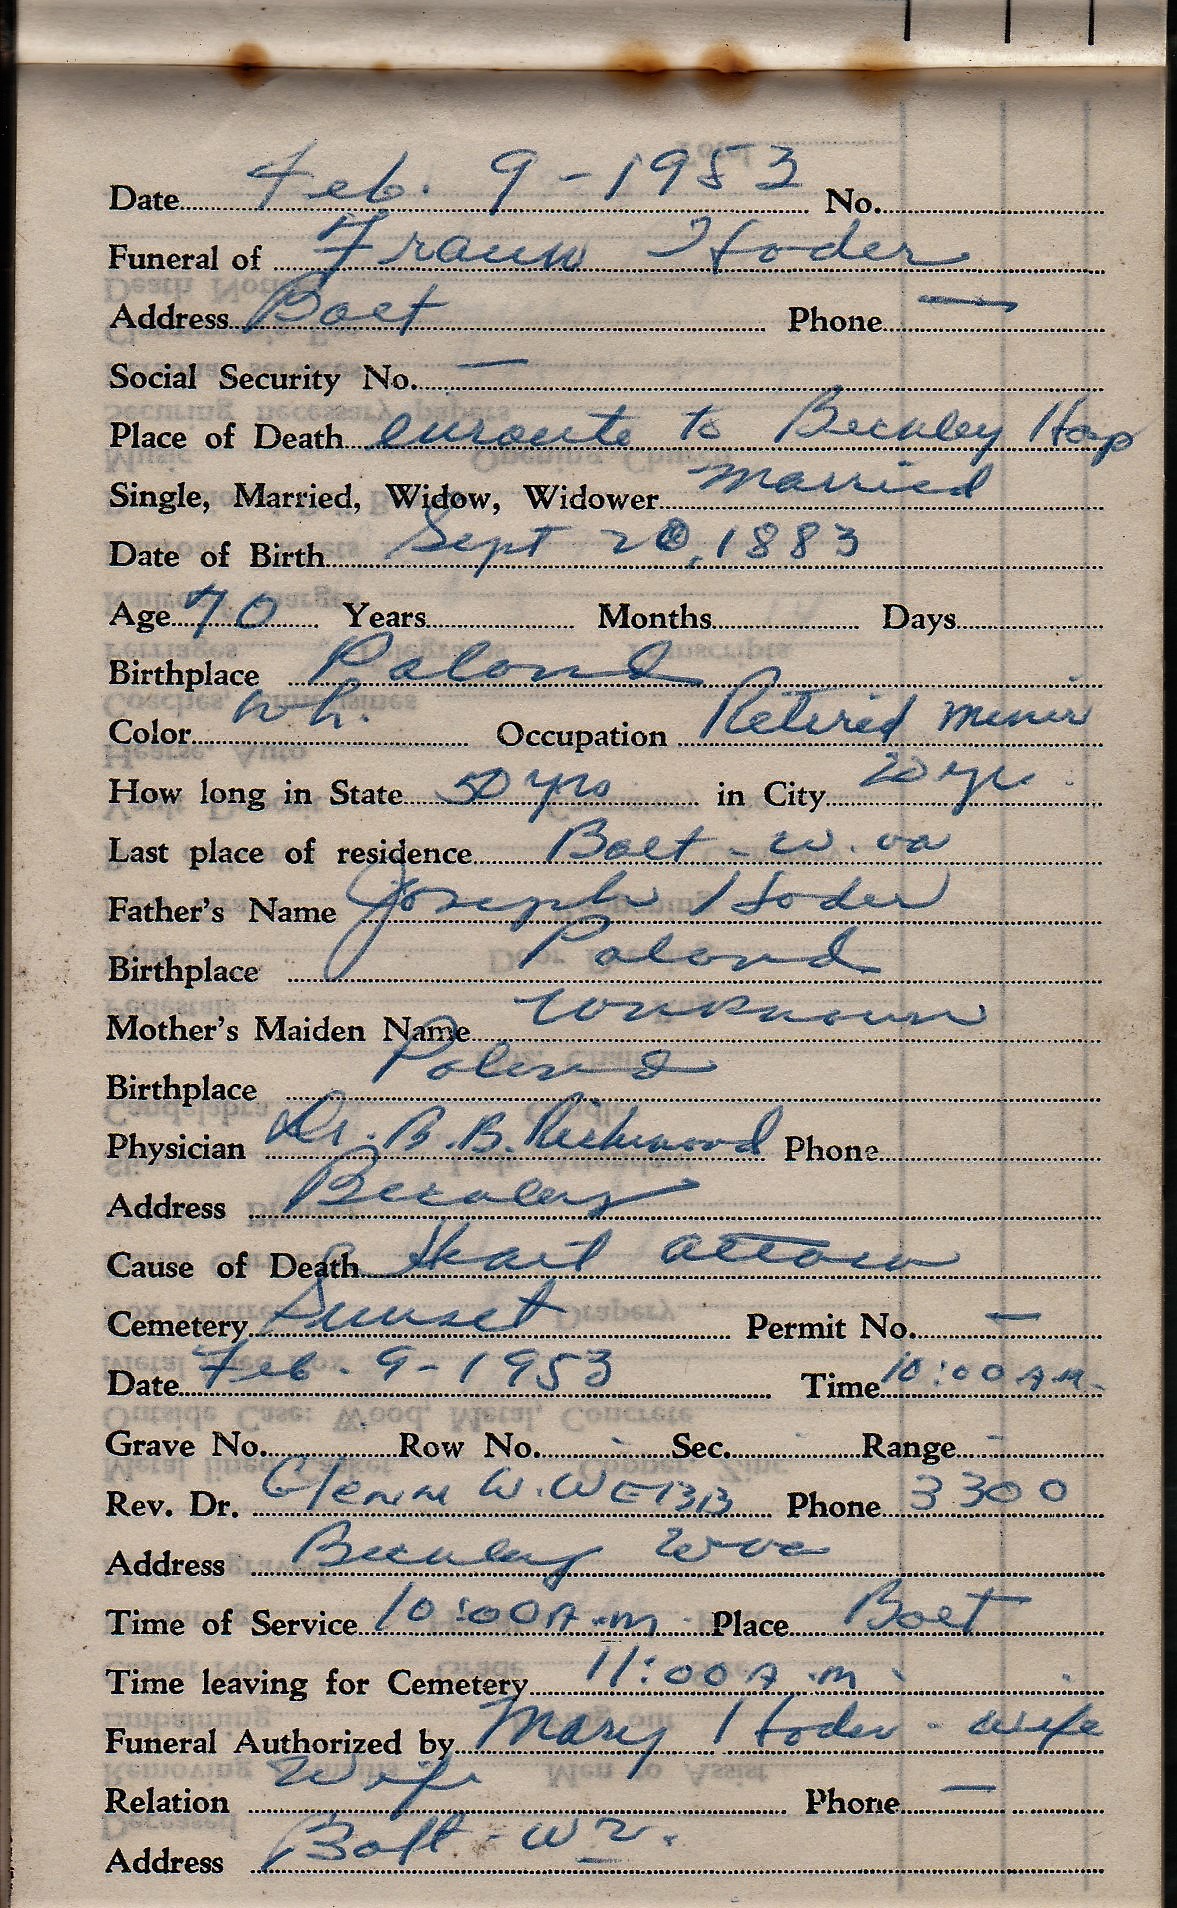 Date Feb. 9-1953 No.
Funeral of Frank Hoder
Address Bolt Phone —
Social Security No. —
Place of Death enroute to Beckley Hosp
Single, Married, Widow, Widower married
Date of Birth Sept 20, 1883
Age 70 Years Months Days
Birthplace Poland
Color wh. Occupation Retired miner
How long in State 50 yrs in City 20 yrs.
Last place of residence Bolt - W. va
Father's Name Joseph Hoder
Birthplace Poland
Mother's Maiden Name unknown
Birthplace Poland
Physician Dr. B. B. Richmond Phone
Address Beckley
Cause of Death Heart attack
Cemetery Sunset Permit No. —
Date Feb. 9-1953 Time 10:00 A.M.
Grave No. Row No. - Sec. - Range -
Rev. Dr. Glenn W. WEBB Phone 3300
Address Beckley W va
Time of Service 10:00 A.m. Place Bolt
Time leaving for Cemetery 11:00 A.m.
Funeral Authorized by Mary Hoder - wife
Relation Wife Phone —
Address Bolt - W V.